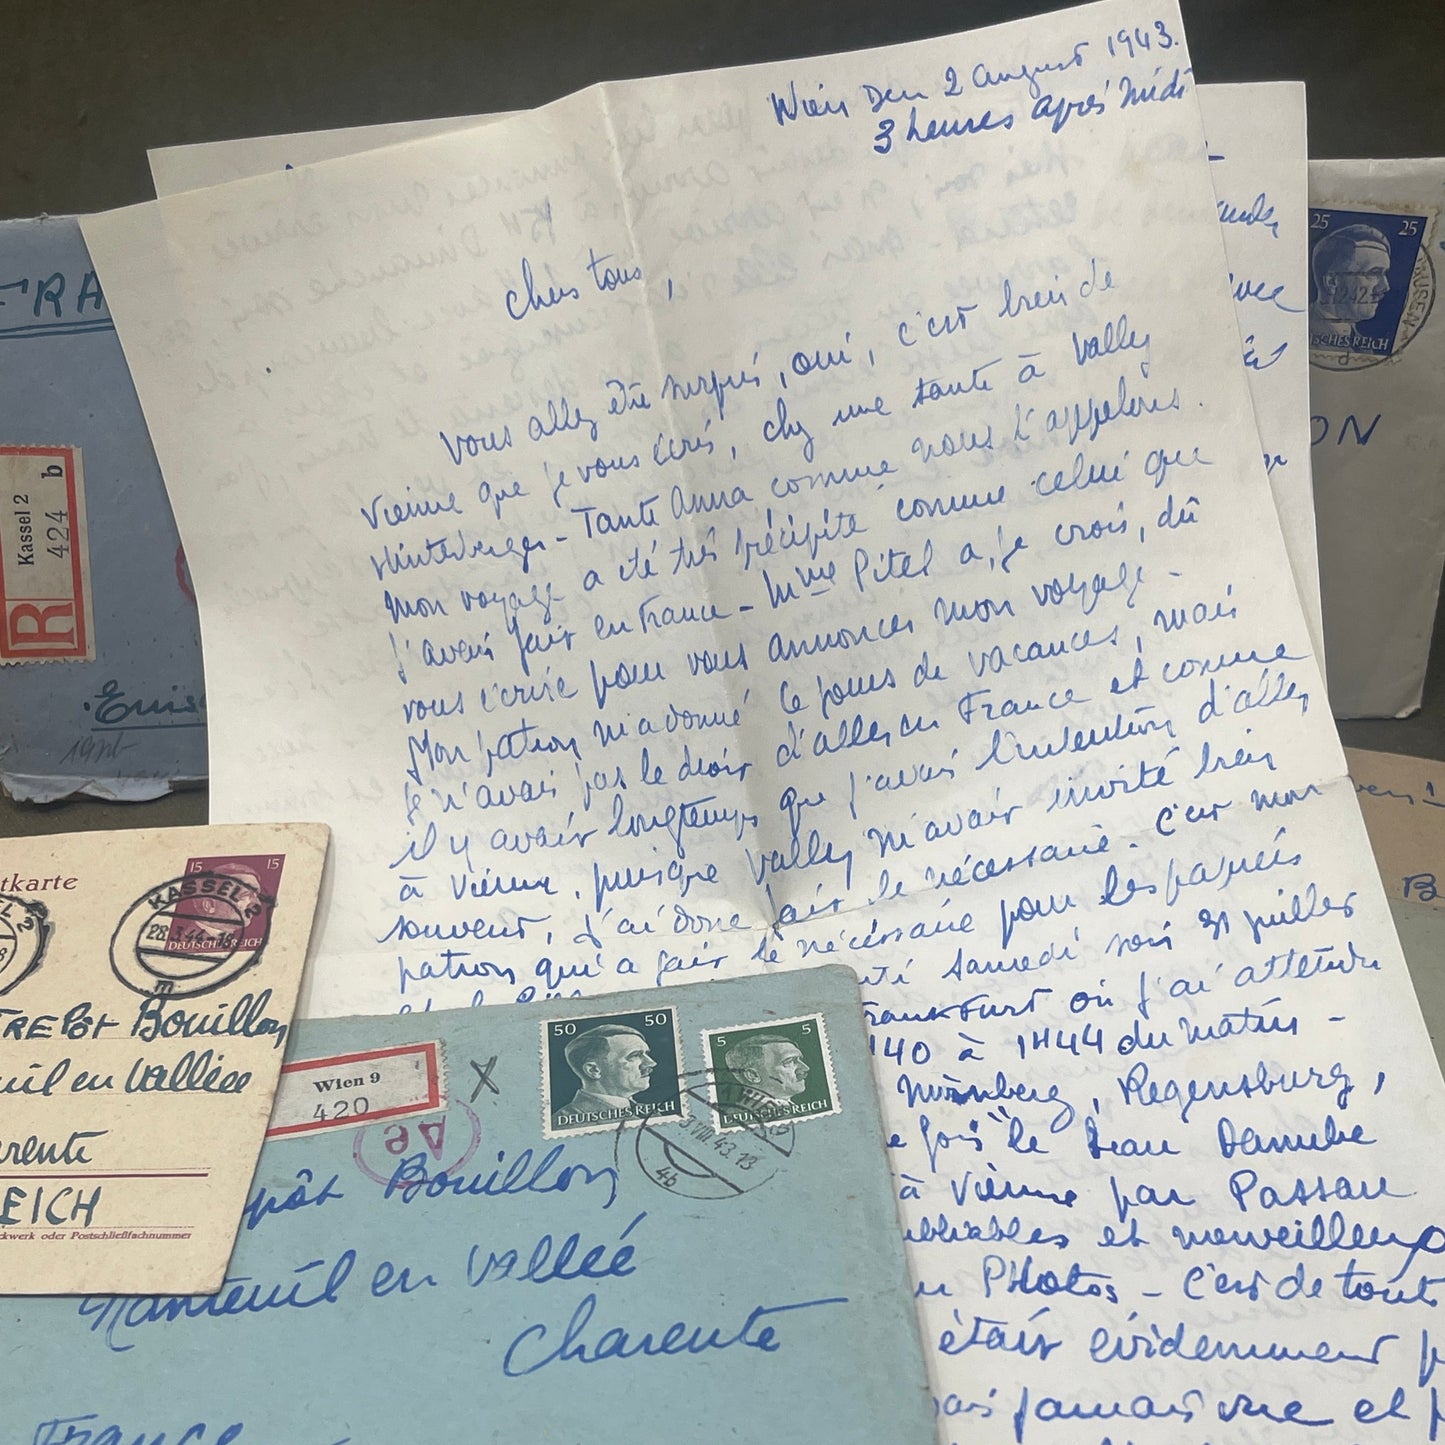 Wien Den 2 august 1943.
3 heures après midi
chers tous,
vous allez être surpris, oui, c'est bien de
Vienne que je vous écris, chez une tante à Vally
Hinterberger - Tante Anna comme nous l'appelons.
Mon voyage a été très précipité comme celui que
j'avais fait en France - Mme Pitel a, je crois, dû
vous écrire pour vous annoncer mon voyage -
Mon patron m'a donné des jours de vacances, mais
je n'avais pas le droit d'aller en France et comme
il y avait longtemps que j'avais l'intention d'aller
à Vienne, puisque Vally m'avait invité bien
souvent, j'ai donc fait le nécessaire. C'est mon
patron qui a fait le nécessaire pour les papiers
té samedi soir 31 juillet
rankfurt où j'ai attendu
140 à 1H44 du matin -
Nürnberg, Regensburg,
e fois le beau Danube
à Vienne par Passau
ubliables et merveilleux
Photos - C'est de toute
était évidemment p
ais jamais vue et p
FRA
Kassel 2
424
b
R
25 25
SCHES REICH
ON
B
tkarte
15 15
DEUTSCHES REICH
KASSEL 2
28.3.44-18
m
TREPÔT Bouillon
uil en Vallée
rente
EICH
ckwerk oder Postschließfachnummer
Wien 9
420
X
Ae
50 50
DEUTSCHES REICH
5 5
DEUTSCHES REICH
3.VIII.43.13
4b
pôt Bouillon
Nanteuil en Vallée
Charente
France